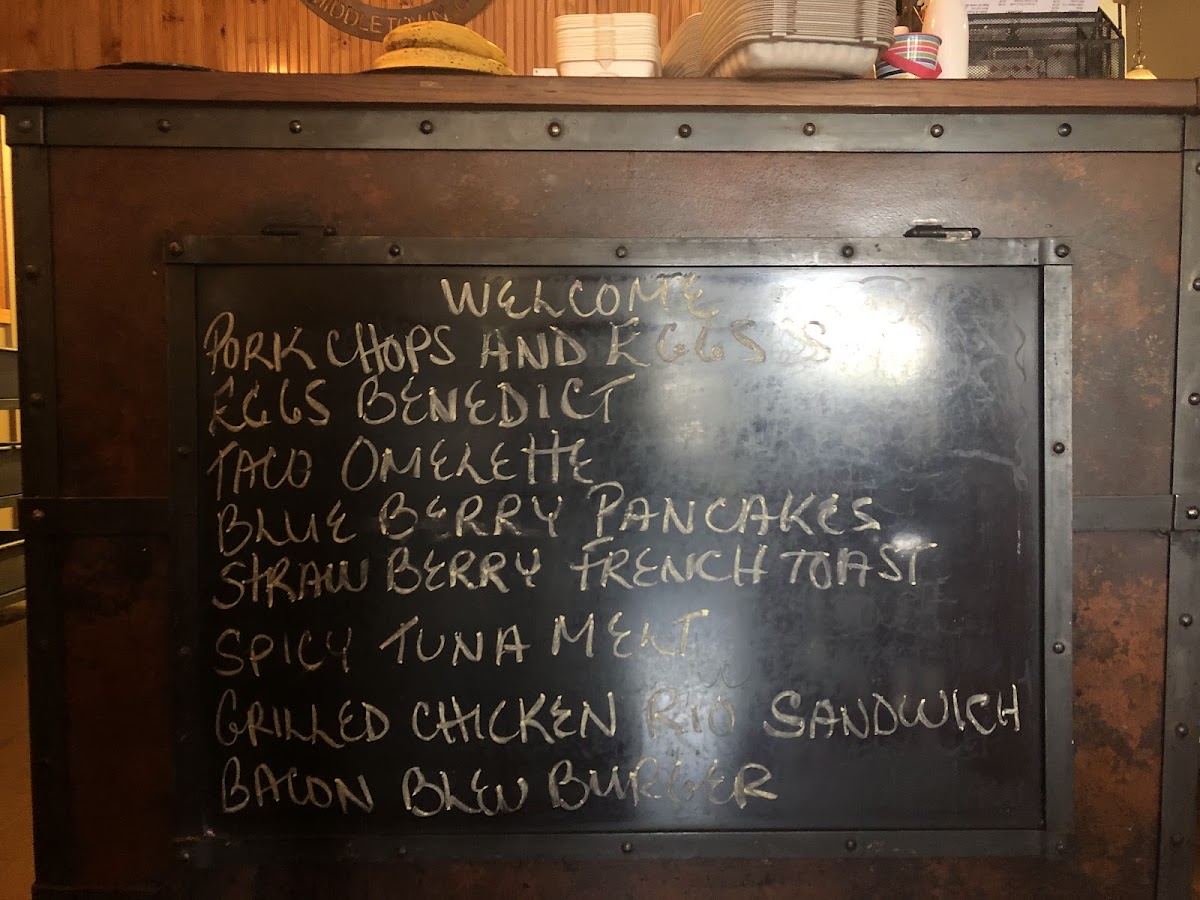 MIDDLETOWN,
WELCOME
PORK CHOPS AND EGGS
EGGS BENEDICT
TACO OMELETTE
BLUE BERRY PANCAKES
STRAW BERRY FRENCH TOAST
SPICY TUNA MELT
GRILLED CHICKEN RIO SANDWICH
BACON BLEU BURGER